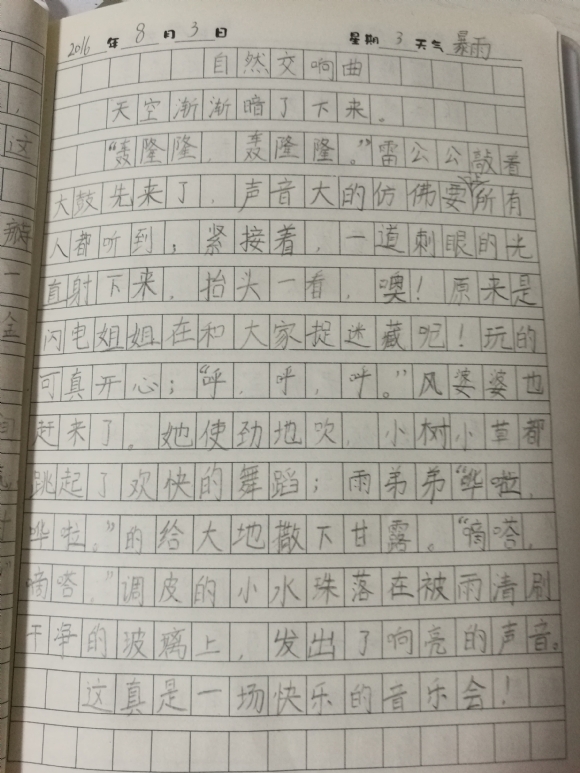 2016 年 8 月 3 日 星期 3 天气 暴雨
自然交响曲
天空渐渐暗了下来。
“轰隆隆，轰隆隆。”雷公公敲着
大鼓先来了，声音大的仿佛要让所有
人都听到；紧接着，一道刺眼的光
直射下来，抬头一看，噢！原来是
闪电姐姐在和大家捉迷藏呢！玩的
可真开心；“呼，呼，呼。”风婆婆也
赶来了。她使劲地吹，小树小草都
跳起了欢快的舞蹈；雨弟弟“哗啦，
哗啦。”的给大地撒下甘露。“嘀嗒，
嘀嗒，”调皮的小水珠落在被雨清刷
干净的玻璃上，发出了响亮的声音。
这真是一场快乐的音乐会！
这
一
全